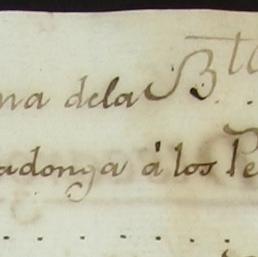 na dela B.ta
adonga á los Pe